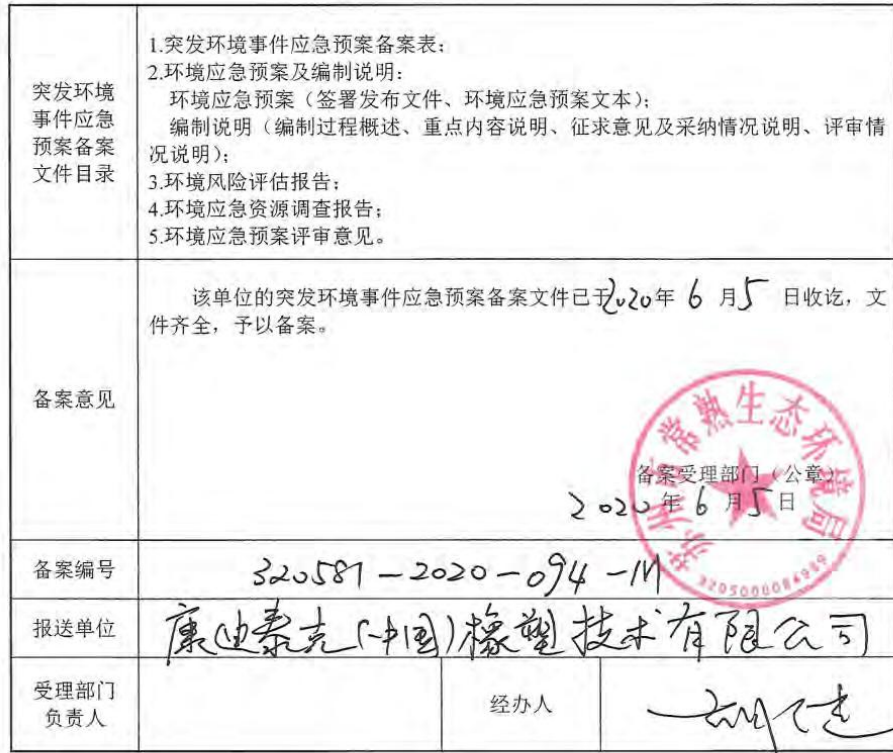 突发环境
事件应急
预案备案
文件目录
1.突发环境事件应急预案备案表；
2.环境应急预案及编制说明：
环境应急预案（签署发布文件、环境应急预案文本）；
编制说明（编制过程概述、重点内容说明、征求意见及采纳情况说明、评审情
况说明）；
3.环境风险评估报告；
4.环境应急资源调查报告；
5.环境应急预案评审意见。
备案意见
该单位的突发环境事件应急预案备案文件已于2020年 6 月5 日收讫，文
件齐全，予以备案。
苏州市常熟生态环境局
备案受理部门（公章）
2020年6月5日
备案编号
320581-2020-094-M
报送单位
康迪泰克(中国)橡塑技术有限公司
受理部门
负责人
经办人